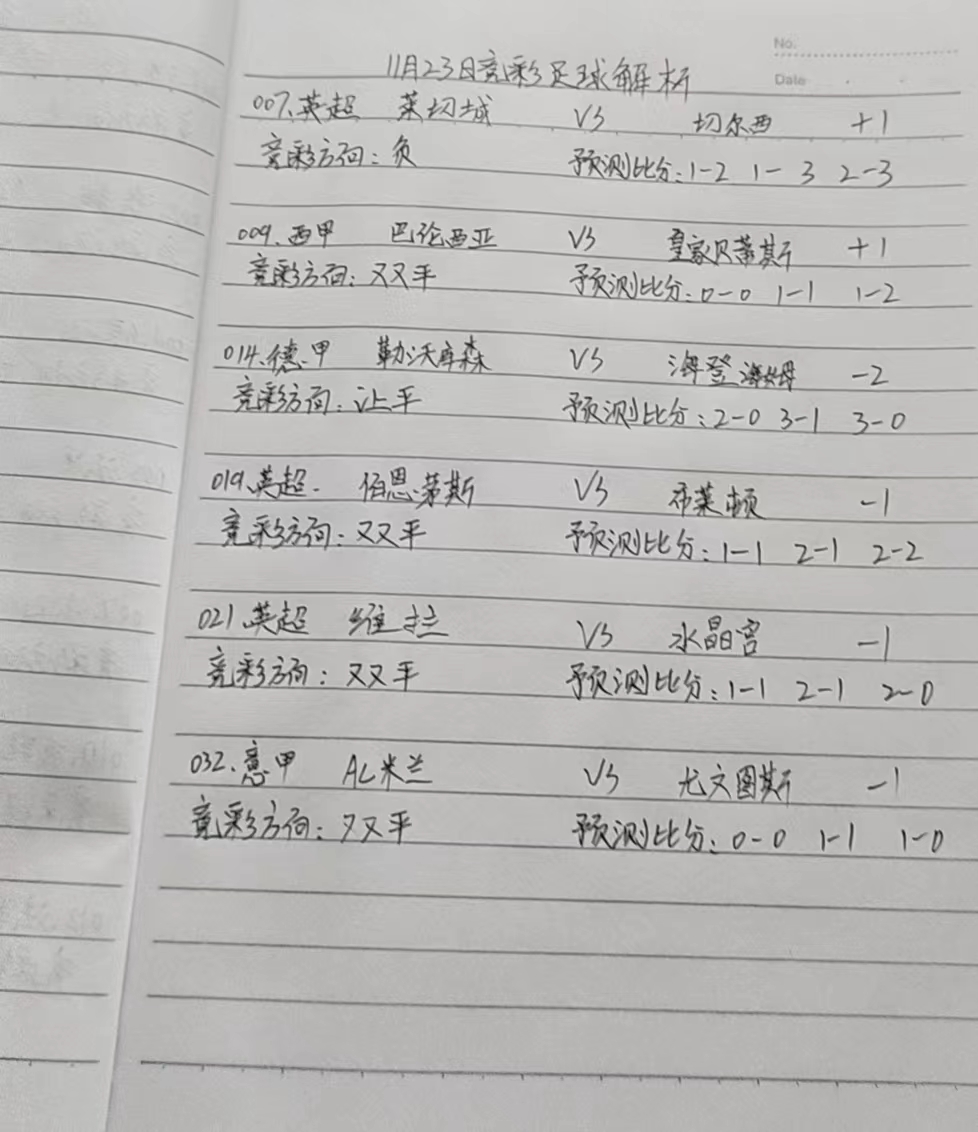 No.
Date
11月23日竞彩足球解析
007.英超 莱切城 VS 切尔西 +1
竞彩方向：负 预测比分：1-2 1-3 2-3
009.西甲 巴伦西亚 VS 皇家贝蒂斯 +1
竞彩方向：双平 预测比分：0-0 1-1 1-2
014.德甲 勒沃库森 VS 海登海姆 -2
竞彩方向：让平 预测比分：2-0 3-1 3-0
019.英超. 伯恩茅斯 VS 布莱顿 -1
竞彩方向：双平 预测比分：1-1 2-1 2-2
021.英超 维拉 VS 水晶宫 -1
竞彩方向：双平 预测比分：1-1 2-1 2-0
032.意甲 AC米兰 VS 尤文图斯 -1
竞彩方向：双平 预测比分：0-0 1-1 1-0